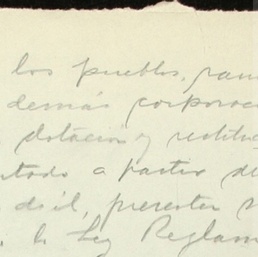 los pueblos, ran
demás corporac
dotación y restitu
ntado a partir de
presenten s
la Ley Reglam